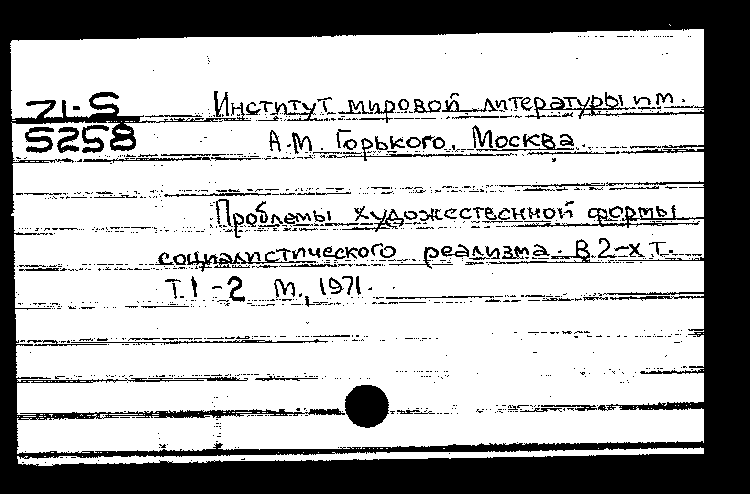 71-5
5258
Институт мировой литературы им.
А.М. Горького. Москва.
Проблемы художественной формы
социалистического реализма. В 2-х т.
Т.1-2 М., 1971.